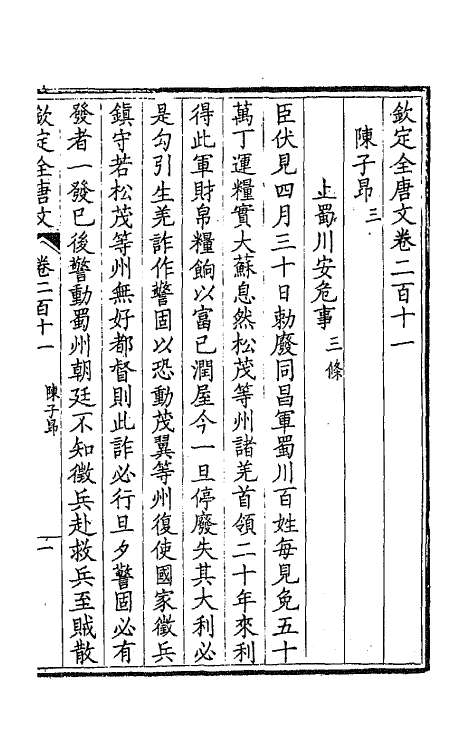 欽定全唐文卷二百十一
陳子昂三
上蜀川安危事三條
臣伏見四月三十日勅廢同昌軍蜀川百姓每見免五十
萬丁運糧實大蘇息然松茂等州諸羌首領二十年來利
得此軍財帛糧餉以富己潤屋今一旦停廢失其大利必
是勾引生羌詐作警固以恐動茂翼等州復使國家徵兵
鎮守若松茂等州無好都督則此詐必行旦夕警固必有
發者一發已後警動蜀州朝廷不知徵兵赴救兵至賊散
欽定全唐文 卷二百十一 陳子昂 一